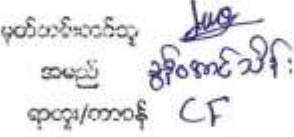 မှတ်တမ်းတင်သူ
အမည် ခွန်အောင်သိန်း
ရာထူး/တာဝန် CF